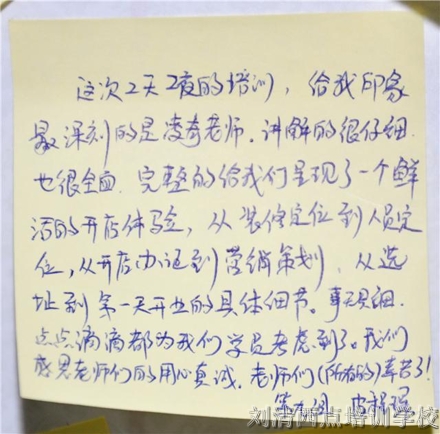 这次2天2夜的培训，给我印象
最深刻的是凌奇老师.讲解的很仔细
也很全面.完整的给我们呈现了一个鲜
活的开店体验，从装修定位到人员定
位，从开店办证到营销策划.从选
址到第一天开业的具体细节。事无巨细.
点点滴滴都为我们学员考虑到了。我们
感恩老师们的用心真诚.老师们(所有的)辛苦了!
第九组
刘清西点培训学校